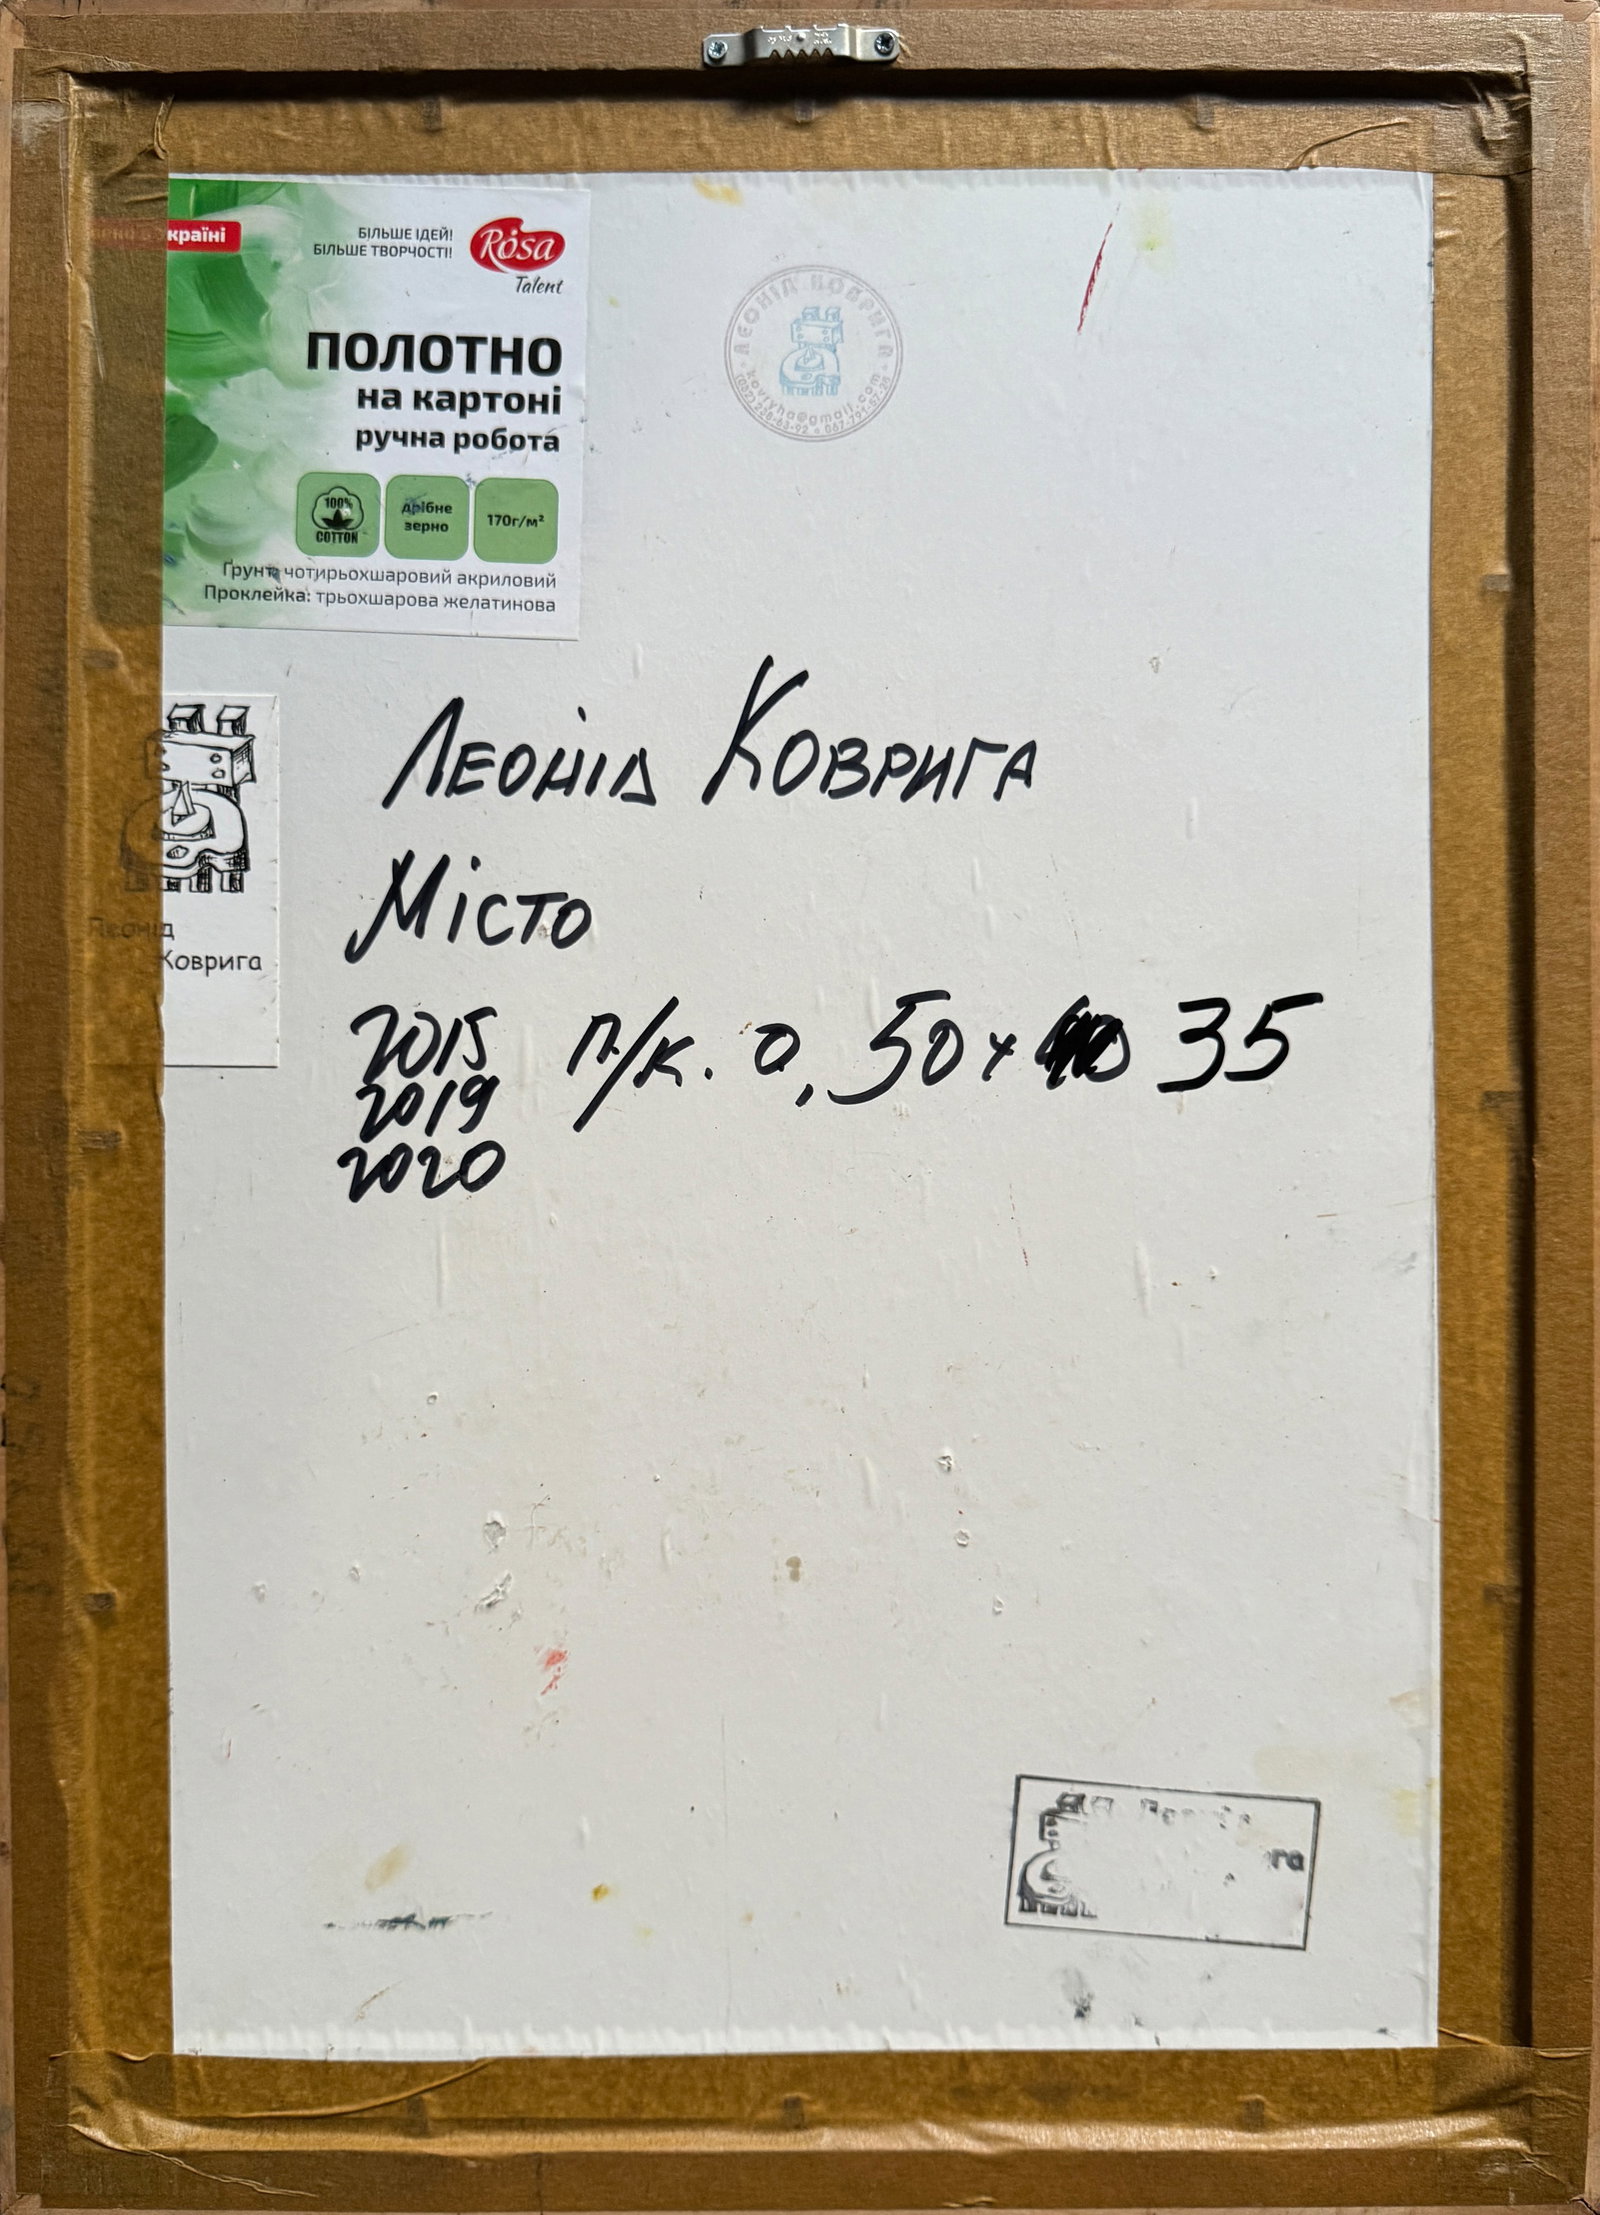 країні
БІЛЬШЕ ІДЕЙ!
БІЛЬШЕ ТВОРЧОСТІ!
Rosa
Talent
ПОЛОТНО
на картоні
ручна робота
100%
COTTON
дрібне
зерно
170г/м²
Ґрунт: чотирьохшаровий акриловий
Проклейка: трьохшарова желатинова
ЛЕОНІД КОВРИГА
kovryha@gmail.com
Леонід
Коврига
Леонід Коврига
Місто
2015 п/к. о, 50х 35
2019
2020
га